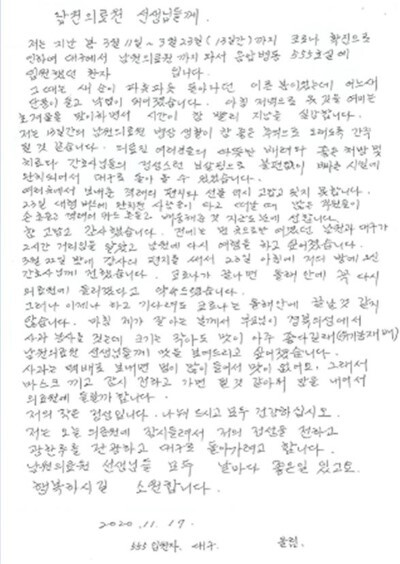 남원의료원 선생님들께.
저는 지난 봄 3월11일~3월23일(13일간)까지 코로나 확진으로
인하여 대구에서 남원의료원까지 와서 음압병동 555호실에
입원했던 환자 입니다.
그때는 새 순이 파릇파릇 돋아나던 이른 봄이었는데 어느새
단풍이 들고 낙엽이 되어졌습니다. 아침 저녁으로 옷깃을 여미는
초겨울을 맞이하면서 시간이 참 빨리 지남을 실감합니다.
저는 13일간의 남원의료원 병상 생활이 참 좋은 추억으로 오래도록 간직
될 것 같습니다. 의료원 여러분들의 따뜻한 배려와 좋은 처방 및
치료와 간호사님들의 정성스런 보살핌으로 불편없이 빠른 시일에
완치되어서 대구로 돌아 올 수 있었습니다.
여러곳에서 보내준 격려의 편지와 선물 역시 고맙고 잊지 못합니다.
23일 대형 버스에 완치된 사람들이 타고 떠날 때 많은 직원분이
손 흔들고 격려의 박수
참 고맙고 감사했습니다. 전에는 먼 곳으로만 여겼던 남원과 대구가
2시간 거리임을 알았고 남원에 다시 여행을 하고 싶어졌습니다.
3월 22일 밤에 감사의 편지를 써서 23일 아침에 저의 방에 오신
간호사님께 전했습니다. 코로나가 끝나면 올해 안에 꼭 다시
의료원에 들리겠다고 약속으로 했습니다.
그러나 이제나 하고 기다려도 코로나는 올해안에 끝날것 같지
않습니다. 마침 제가 잘 아는 분께서 부모님이 경북의성에서
사과 농사를 짓는데 크기는 작아도 맛이 아주 좋다길래(유기농재배)
남원의료원 선생님들께 맛을 보여드리고 싶어졌습니다.
사과는 택배로 보내면 멍이 많이 들어서 맛이 없어요. 그래서
마스크 끼고 잠시 전하고 가면 될 것 같아서 맘을 내어서
의료원에 들릴까 합니다.
저의 작은 정성입니다. 나눠 드시고 모두 건강하십시오.
저는 오늘 의료원에 잠시들려서 저의 정성을 전하고
광한루를 관광하고 대구로 돌아가려고 합니다.
남원의료원 선생님들 모두 날마다 좋은일 있고요.
행복하시길 소원합니다.
2020.11.17.
555 입원자. 대구. 올림.